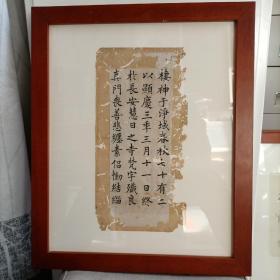 棲神于淨域春秋七十有二
以顯慶三年三月十一日終
於長安慧日之寺梵宇殲良
真門喪善悲纏素侶慟結緇